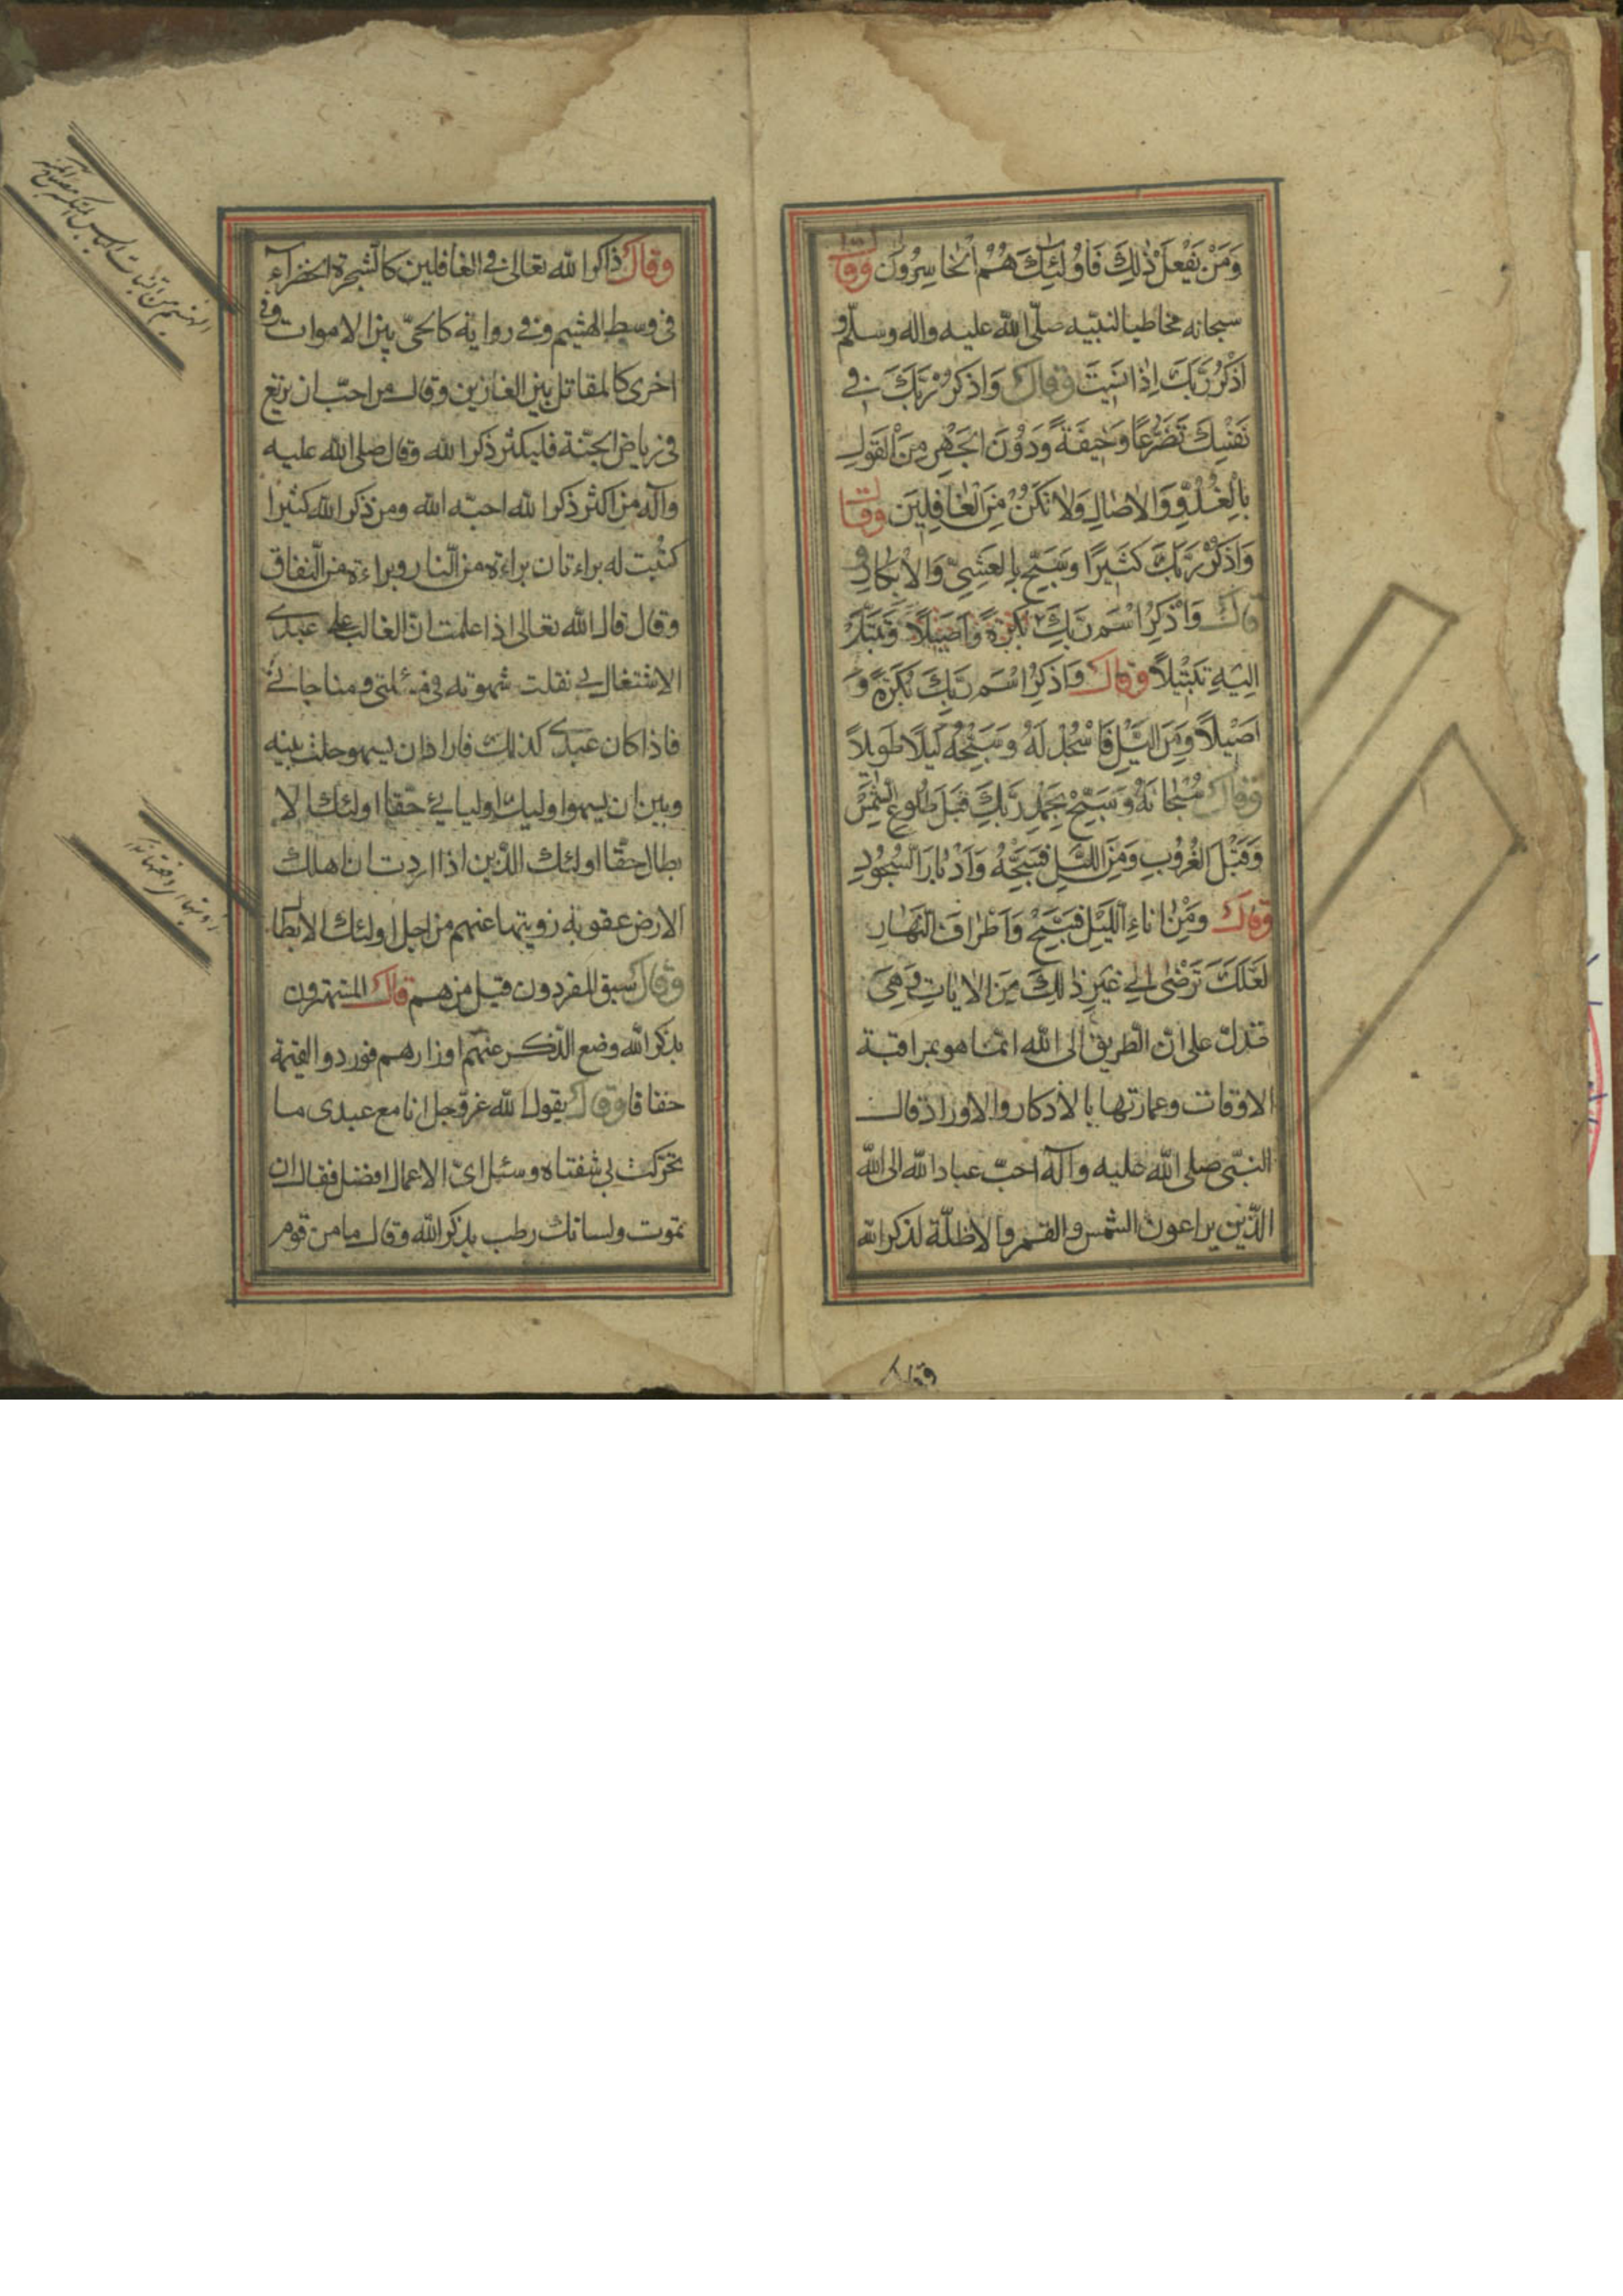 وَمَنْ يَفْعَلْ ذٰلِكَ فَاُولٰئِكَ هُمُ الْخاسِرُونَ وَقال
سبحانه مخاطبا لنبيّه صلّى اللّه عليه واله وسلّم و
اذْكُرْ رَبَّكَ اِذا نَسِيتَ وَقال وَاذْكُرْ رَبَّكَ فِي
نَفْسِكَ تَضَرُّعاً وَخِيفَةً وَدُونَ الْجَهْرِ مِنَ الْقَوْلِ
بِالْغُدُوِّ وَالْاصالِ وَلا تَكُنْ مِنَ الْغافِلِينَ وَقال
وَاذْكُرْ رَبَّكَ كَثيرًا وَسَبِّحْ بِالْعَشِيِّ وَالْاِبْكارِ وَ
قال وَاذْكُرِ اسْمَ رَبِّكَ بُكْرَةً وَاَصيلًا وَتَبَتَّلْ
اِلَيْهِ تَبْتيلًا وَقال وَاذْكُرِ اسْمَ رَبِّكَ بُكْرَةً وَ
اَصيلًا وَمِنَ اللَّيْلِ فَاسْجُدْ لَهُ وَسَبِّحْهُ لَيْلًا طَويلًا
وَقال سُبْحانَهُ وَسَبِّحْ بِحَمْدِ رَبِّكَ قَبْلَ طُلُوعِ الشَّمْسِ
وَقَبْلَ الْغُرُوبِ وَمِنَ اللَّيْلِ فَسَبِّحْهُ وَاَدْبارَ السُّجُودِ
وَقال وَمِنْ اناءِ اللَّيْلِ فَسَبِّحْ وَاَطْرافَ النَّهارِ
لَعَلَّكَ تَرْضٰى اِلٰى غَيْرِ ذٰلِكَ مِنَ الْاياتِ وَهِيَ
تدلّ على انّ الطريق الى اللّه انّما هو بمراقبة
الاوقات وعمارتها بالاذكار والاوراد قال
النبّى صلى اللّه عليه وآله احبّ عباد اللّه الى اللّه
الّذين يراعون الشمس والقمر والاظلّة لذكر اللّه
وقال ذاكر اللّه تعالى فى الغافلين كالشجرة الخضراء
فى وسط الهشيم وفى رواية كالحىّ بين الاموات وفى
اخرى كالمقاتل بين الغازين وقال من احبّ ان يرتع
فى رياض الجنّة فليكثر ذكر اللّه وقال صلى اللّه عليه
وآله من اكثر ذكر اللّه احبّه اللّه ومن ذكر اللّه كثيرا
كتبت له براءتان براءة من النّار وبراءة من النّفاق
وقال قال اللّه تعالى اذا علمت انّ الغالب على عبدى
الاشتغال بى نقلت شهوته فى مسئلتى ومناجاتى
فاذا كان عبدى كذلك فاراد ان يسهو حلت بينه
وبين ان يسهو اوليك اوليائى حقّا اولئك الا
بطال حقّا اولئك الّذين اذا اردت ان اهلك
الارض عقوبة زويتها عنهم من اجل اولئك الابطال
وقال سبق المفردون قيل من هم قال المستهترون
بذكر اللّه وضع الذّكر عنهم اوزارهم فوردوا القيمة
خفافا وقال يقول اللّه عزّ وجلّ انا مع عبدى ما
تحرّكت بى شفتاه وسئل اىّ الاعمال افضل فقال ان
تموت ولسانك رطب بذكر اللّه وقال ما من قوم